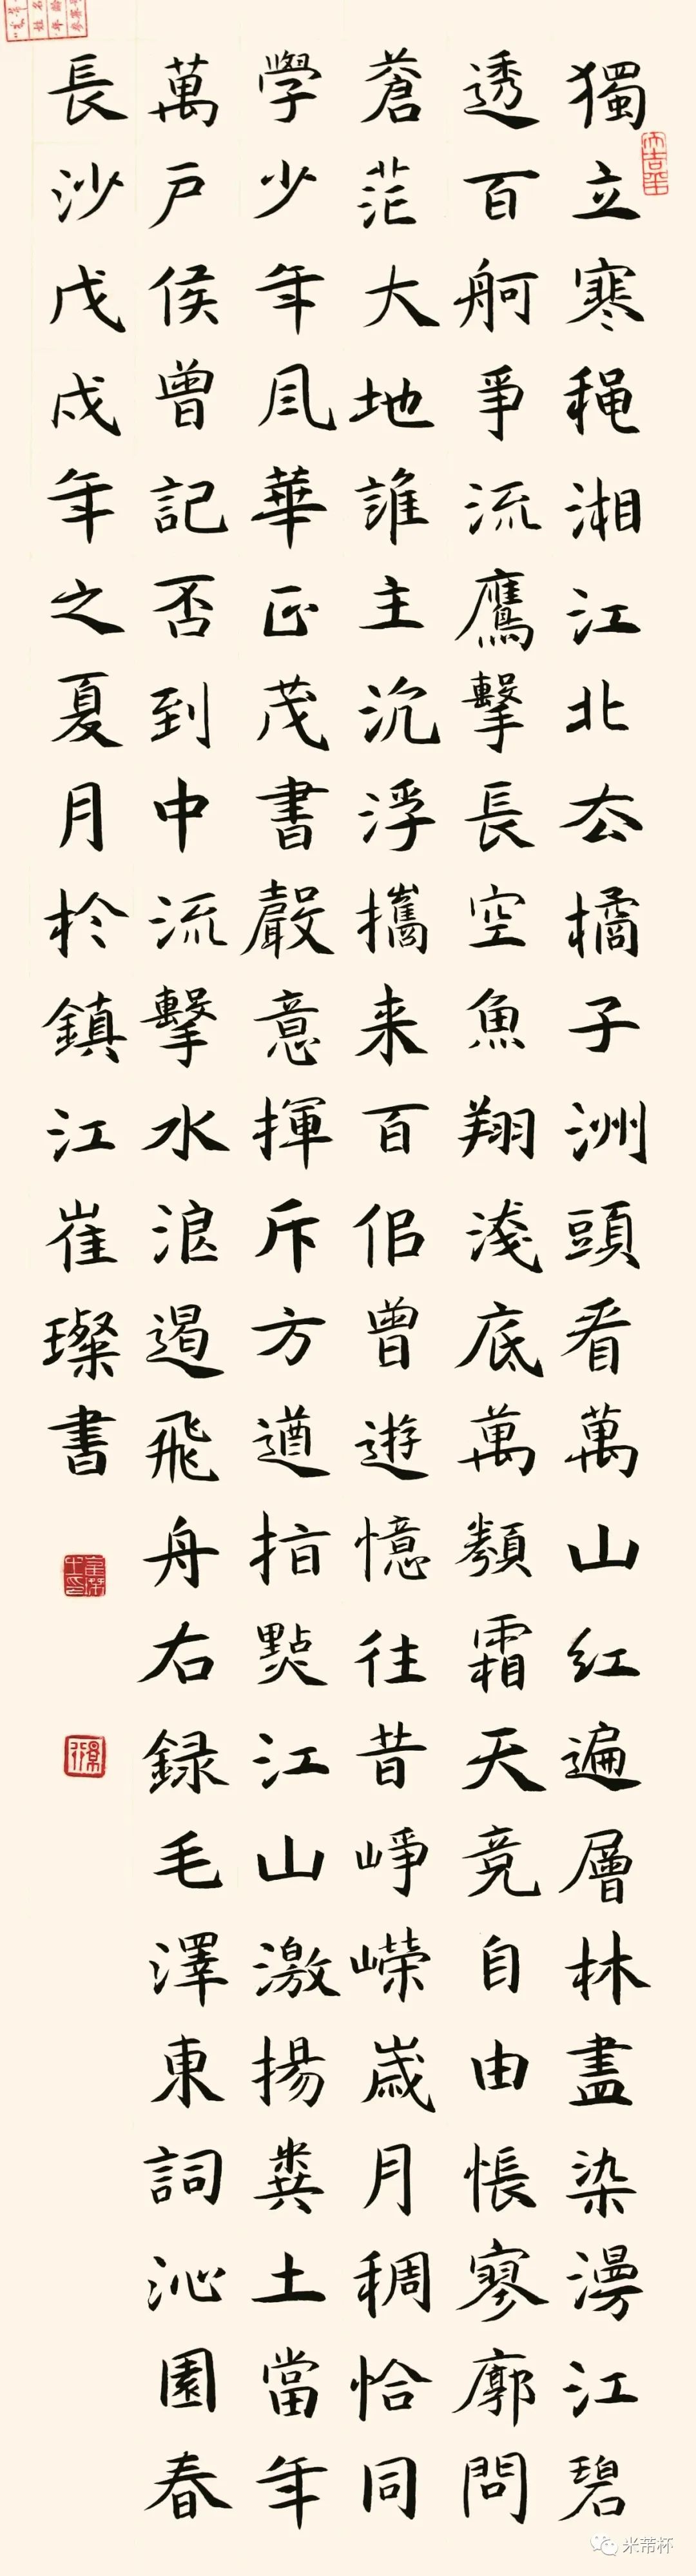 獨立寒穐湘江北厺橘子洲頭看萬山紅遍層林盡染漫江碧
透百舸爭流鷹擊長空魚翔淺底萬類霜天竟自由悵寥廓問
蒼茫大地誰主沉浮攜来百侣曾遊憶往昔崢嶸歲月稠恰同
學少年風華正茂書聲意揮斥方遒指點江山激揚糞土當年
萬戶侯曾記否到中流擊水浪遏飛舟右録毛澤東詞沁園春
長沙戊戌年之夏月於鎮江崔璨書
大吉羊
米芾杯